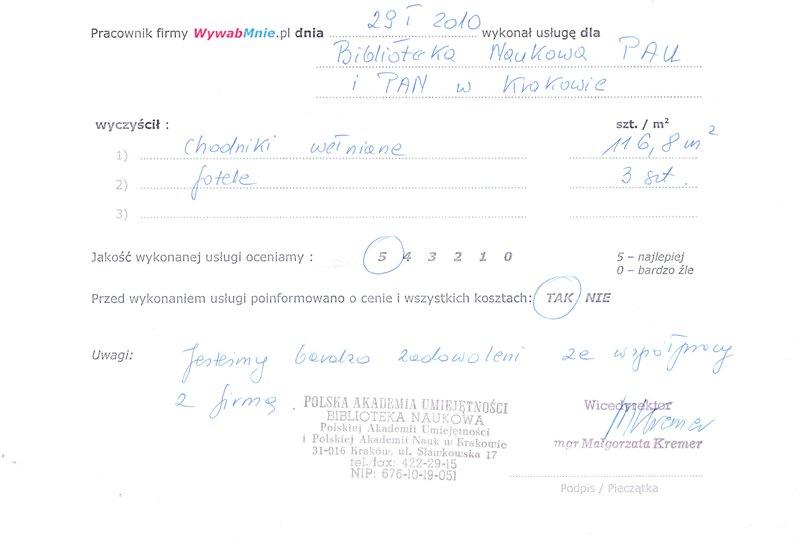 Pracownik firmy WywabMnie.pl dnia 29 I 2010 wykonał usługę dla
Biblioteka Naukowa PAU
i PAN w Krakowie
wyczyścił :
szt. / m²
1) chodniki wełniane 116,8 m²
2) fotele 3 szt.
3)
Jakość wykonanej usługi oceniamy : 5 4 3 2 1 0
5 – najlepiej
0 – bardzo źle
Przed wykonaniem usługi poinformowano o cenie i wszystkich kosztach: TAK NIE
Uwagi: Jesteśmy bardzo zadowoleni ze współpracy
z firmą.
POLSKA AKADEMIA UMIEJĘTNOŚCI
BIBLIOTEKA NAUKOWA
Polskiej Akademii Umiejętności
i Polskiej Akademii Nauk w Krakowie
31-016 Kraków, ul. Sławkowska 17
tel./fax: 422-29-15
NIP: 676-10-19-051
Wicedyrektor
MKremer
mgr Małgorzata Kremer
Podpis / Pieczątka